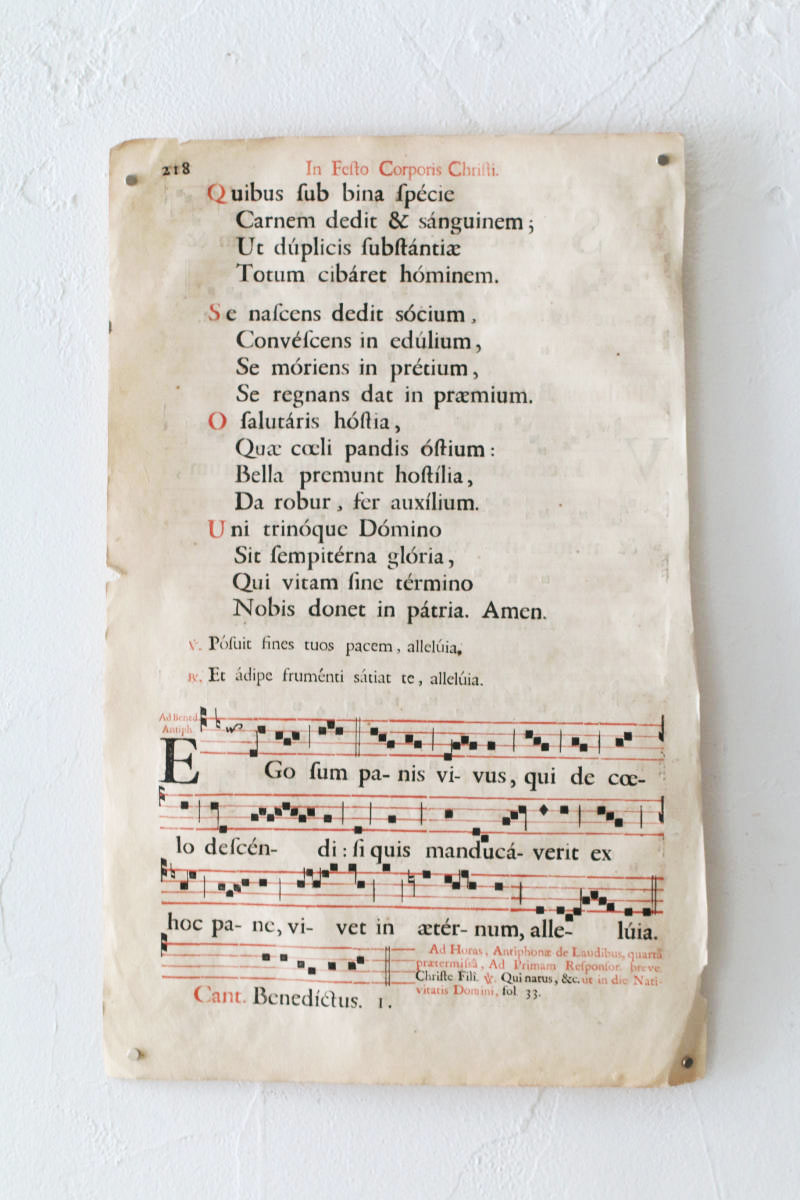 218 In Feſto Corporis Chriſti.
Quibus ſub bina ſpécie
Carnem dedit & sánguinem;
Ut dúplicis ſubſtántiæ
Totum cibáret hóminem.
Se naſcens dedit sócium,
Convéſcens in edúlium,
Se móriens in prétium,
Se regnans dat in præmium.
O ſalutáris hóſtia,
Quæ cœli pandis óſtium:
Bella premunt hoſtília,
Da robur, fer auxílium.
Uni trinóque Dómino
Sit ſempitérna glória,
Qui vitam ſine término
Nobis donet in pátria. Amen.
℣. Póſuit fines tuos pacem, allelúia.
℟. Et ádipe fruménti sátiat te, allelúia.
Ad Bened.
Antiph.
EGo ſum pa- nis vi- vus, qui de cœ-
lo deſcén- di: ſi quis manducá- verit ex
hoc pa- ne, vi- vet in ætér- num, alle- lúia.
Ad Horas, Antiphonæ de Laudibus, quartâ
prætermiſsâ, Ad Primam Reſponſor. breve
Chriſte Fili. ℣. Qui natus, &c. ut in die Nati-
vitatis Domini, fol 33.
Cant. Benedíctus. 1.